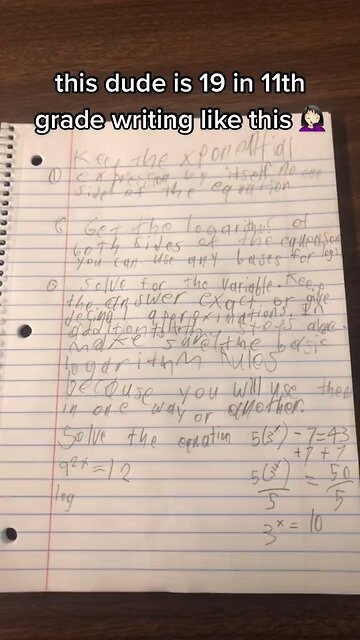 this dude is 19 in 11th
grade writing like this 🤦🏻‍♀️
Keep the xponential
① expression by itself no one
side of the eqnation
Get the logarithms of
both sides of the
you can use any bases for logs
Solve for the variable. Keep
the answer exact or give
decimal approximations. In
addition to the steps above
make sure the basic
logarithm rules
because you will use them
in one way or another.
Solve the equation 5(3ˣ) - 7 = 43
+7 +7
9²ˣ = 12 5(3ˣ)/5 = 50/5
log
3ˣ = 10